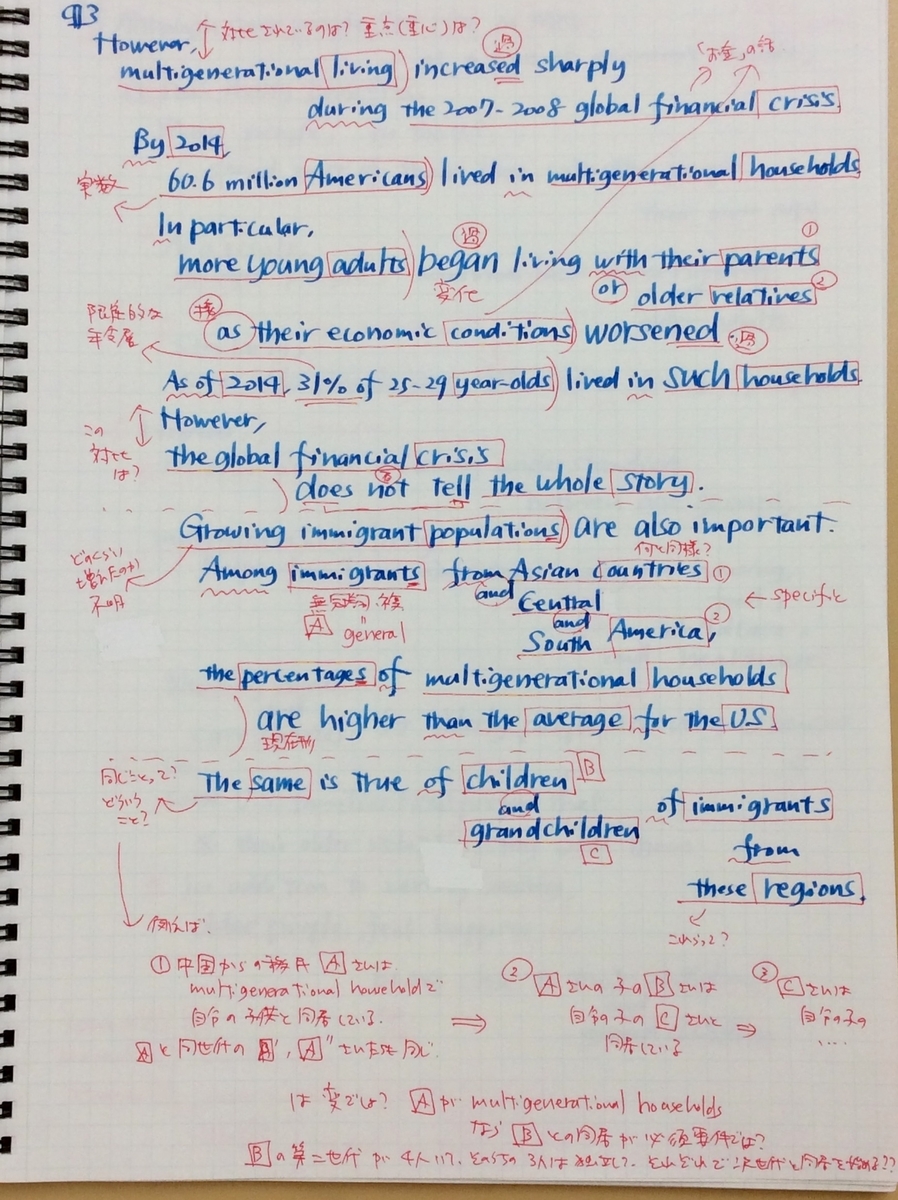 ¶3
However, ↕ 対比されているのは？ 重点(重心)は？
過 「お金」の話
multigenerational living) increased sharply
during the 2007-2008 global financial crisis.
By 2014,
実数 60.6 million Americans) lived in multigenerational households.
In particular, 過 ①
more young adults) began living with their parents
変化 or older relatives ②
限定的な 接
年令層 as their economic conditions) worsened 過
As of 2014, 31% of 25-29 year-olds) lived in such households.
However,
この
対比
は？
the global financial crisis
does not tell the whole story.
Growing immigrant populations) are also important.
どのくらい
増えたのか
不明
何と同様？
Among immigrants from Asian Countries ①
無冠詞・複 and Central ← specific
A " general and
South America, ②
the percentages of multigenerational households
are higher than the average for the U.S.
現在形
同じことって？
どういう
こと？
The same is true of children B
and of immigrants
grandchildren from
C
these regions.
これらって？
例えば
① 中国からの移民 A さんは
multigenerational household で
自分の子供と同居している.
A と同世代の A', A" さんたちも同じ
⇒
② A さんの子の B さんは
自分の子の C さんと
同居している
⇒
③ C さんは
自分の子の
....
は変では？ A が multigenerational households
なら B との同居が必須要件では？
B の第二世代が4人いて, そのうちの3人は独立して, それぞれで二次世代と同居を始める??